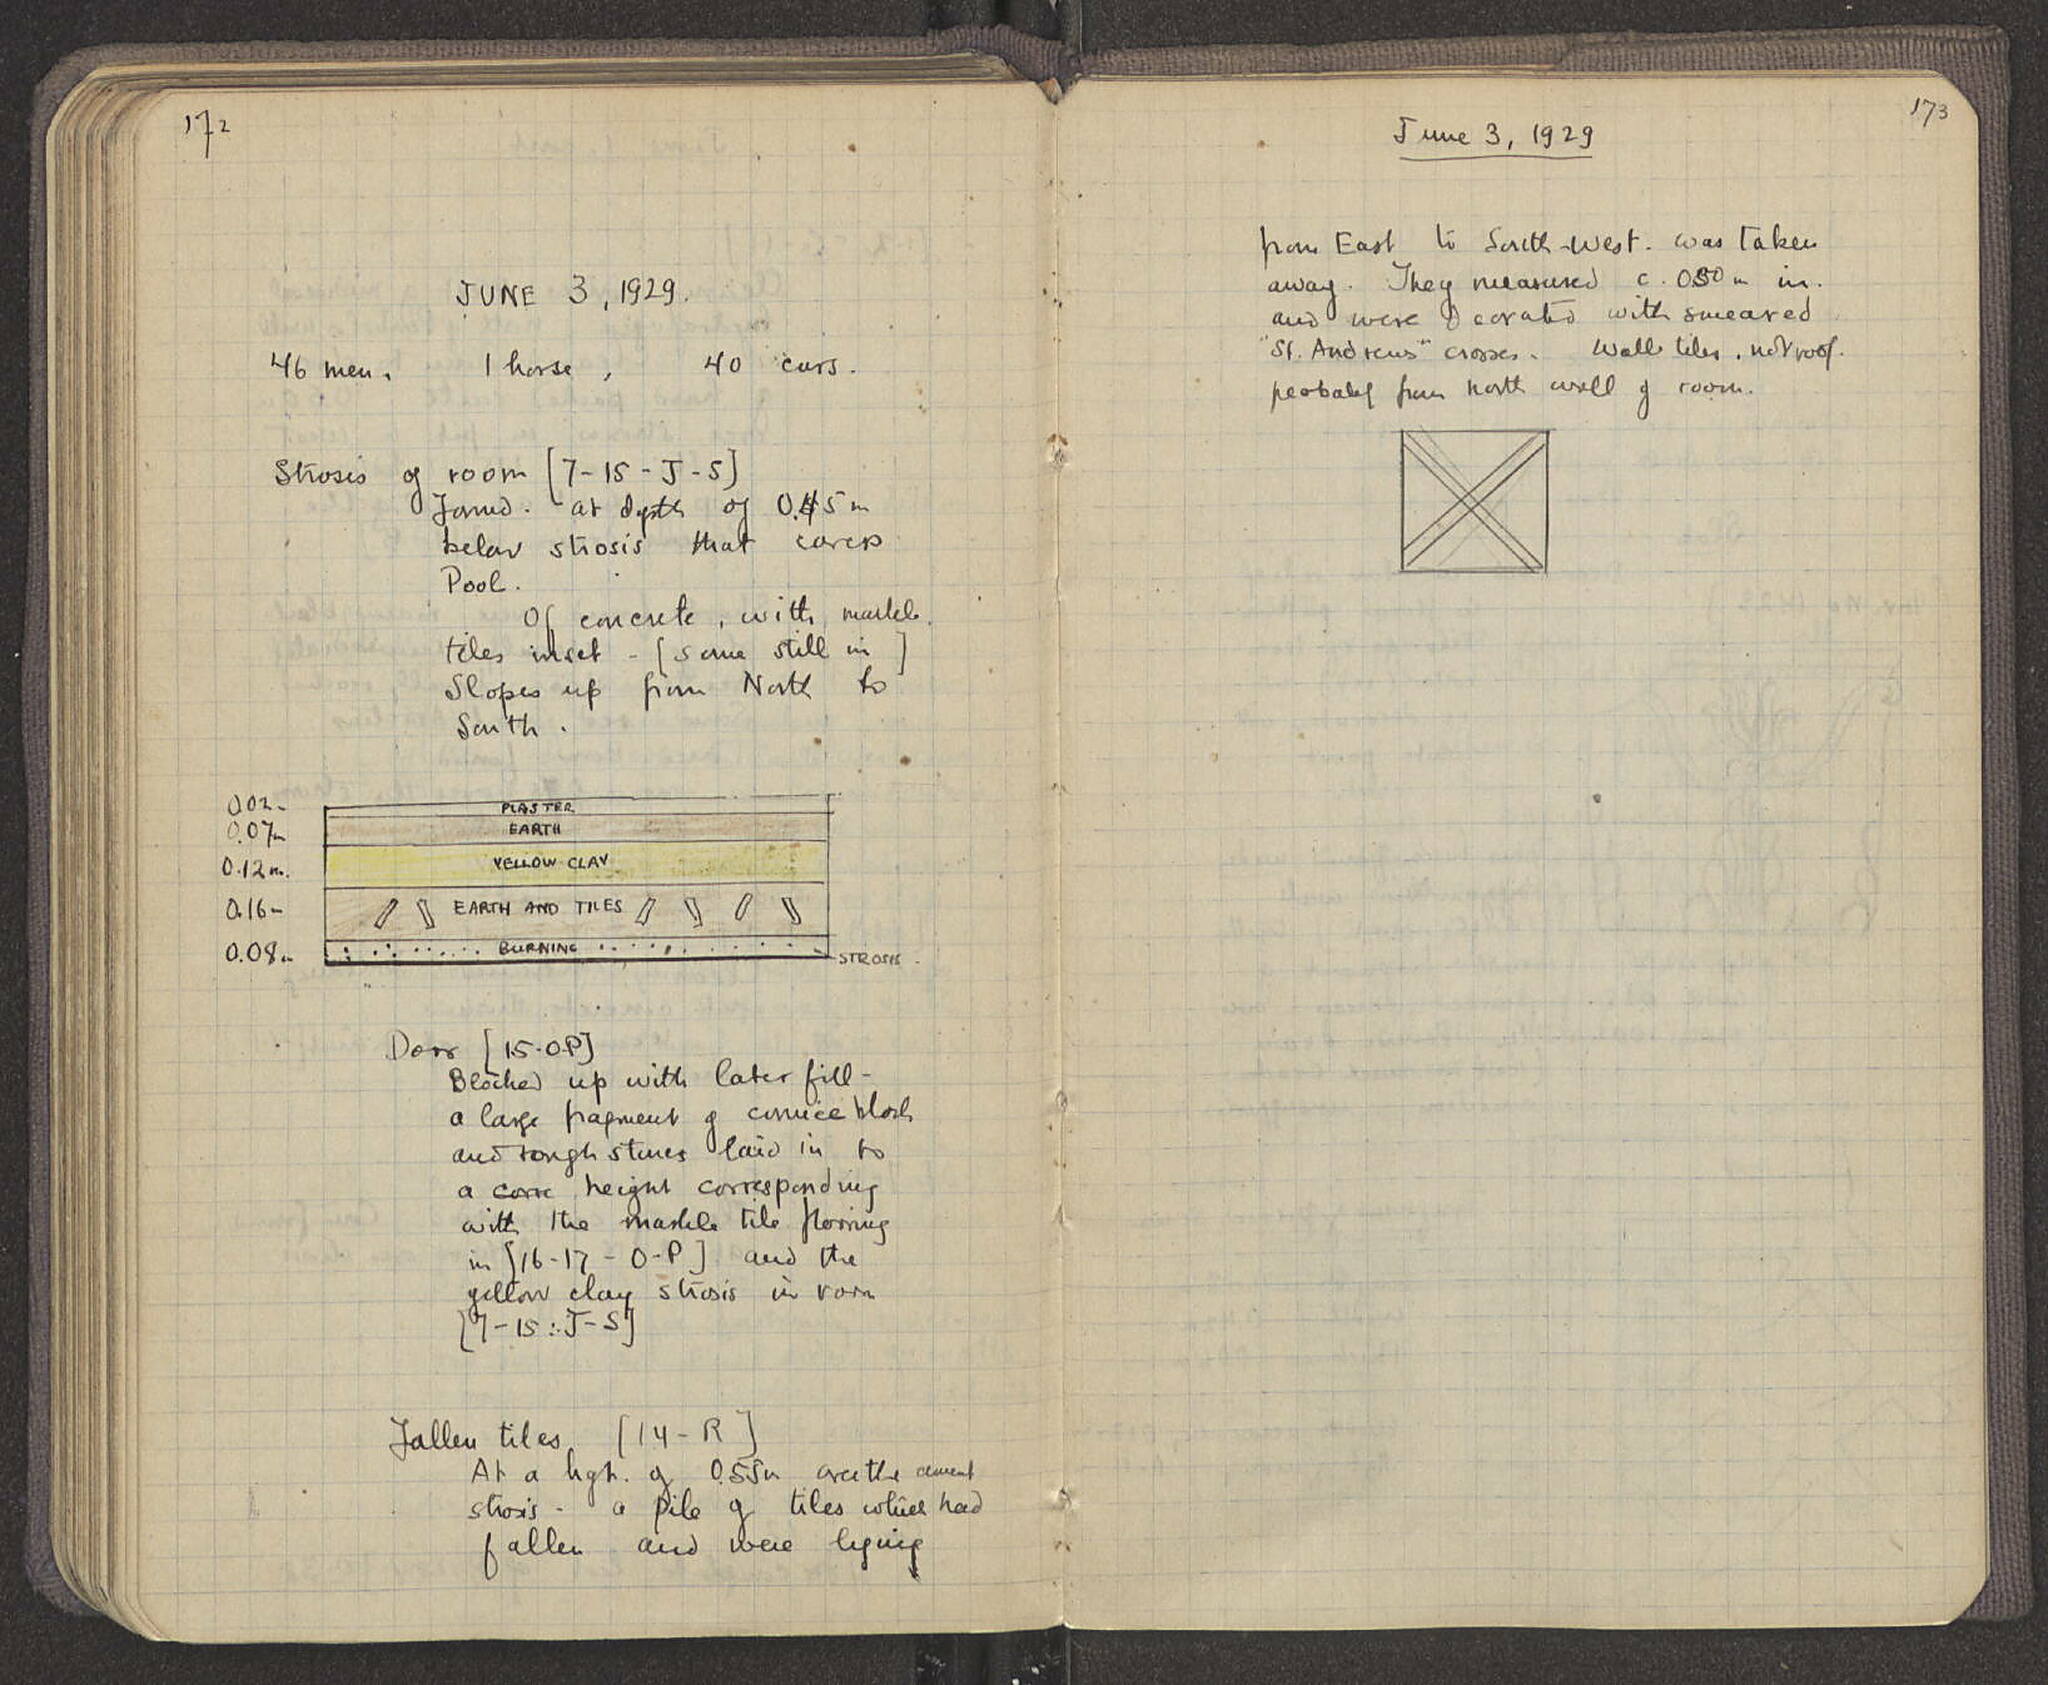 172
JUNE 3, 1929.
46 men, 1 horse, 40 cars.
Strosis of room [7-15-J-S]
Found. at depth of 0.45m
below strosis that covers
Pool.
Of concrete, with marble
tiles inset - [some still in]
Slopes up from North to
South.
0.02m PLASTER
0.07m EARTH
0.12m. YELLOW CLAY
0.16m EARTH AND TILES
0.08m BURNING STROSIS.
Door [15-O-P]
Blocked up with later fill -
a large fragment of cornice block
and rough stones laid in to
a corre height corresponding
with the marble tile flooring
in [16-17-O-P] and the
yellow clay strosis in room
[7-15:J-S]
Fallen tiles [14-R]
At a hght. of 0.55m over the cement
strosis - a pile of tiles which had
fallen and were lying
173
June 3, 1929
from East to South-West. was taken
away. They measured c. m in.
and were decorated with smeared
"St. Andrews" crosses. Wall tiles, not roof.
probably from North wall of room.